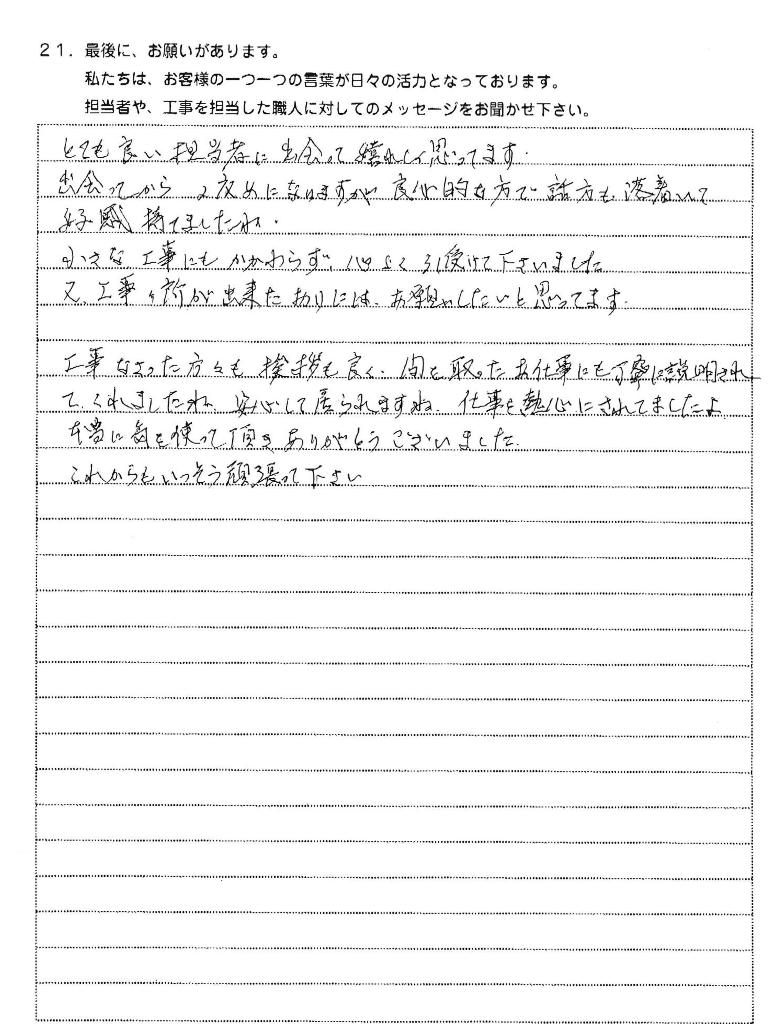 21．最後に、お願いがあります。
私たちは、お客様の一つ一つの言葉が日々の活力となっております。
担当者や、工事を担当した職人に対してのメッセージをお聞かせ下さい。
とても良い担当者に出会って嬉れしく思ってます.
出会ってから2度めになりますが良心的な方で話方も落着いて
好感持てましたね.
小さな工事にもかかわらず、心よく引受けて下さいました
又、工事ヶ所が出来たおりには、お願いしたいと思ってます.
工事なさった方々も挨拶も良く、間を取ったお仕事にも丁寧に説明され
て、くれましたね、安心して居られますね. 仕事を熱心にされてましたよ
本当に気を使って頂きありがとうございました.
これからもいっそう頑張って下さい